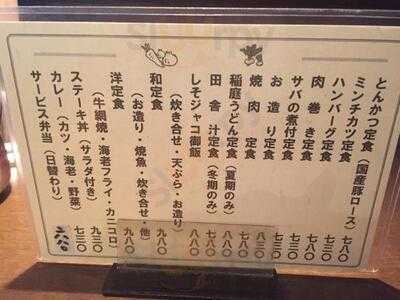 とんかつ定食（国産豚ロース）七八〇
ミンチカツ定食 七三〇
ハンバーグ定食 七三〇
肉巻き定食 七三〇
サバの煮付定食 七三〇
お造り定食 七八〇
焼肉定食 八三〇
稲庭うどん定食（夏期のみ）八八〇
田舎汁定食（冬期のみ）七八〇
しそジャコ御飯
（炊き合せ・天ぷら・お造り）八八〇
和定食
（お造り・焼魚・炊き合せ・他）九八〇
洋定食
（牛網焼・海老フライ・カニコロ）九八〇
ステーキ丼（サラダ付き）九三〇
カレー（カツ・海老・野菜）七三〇
サービス弁当（日替わり）六八〇